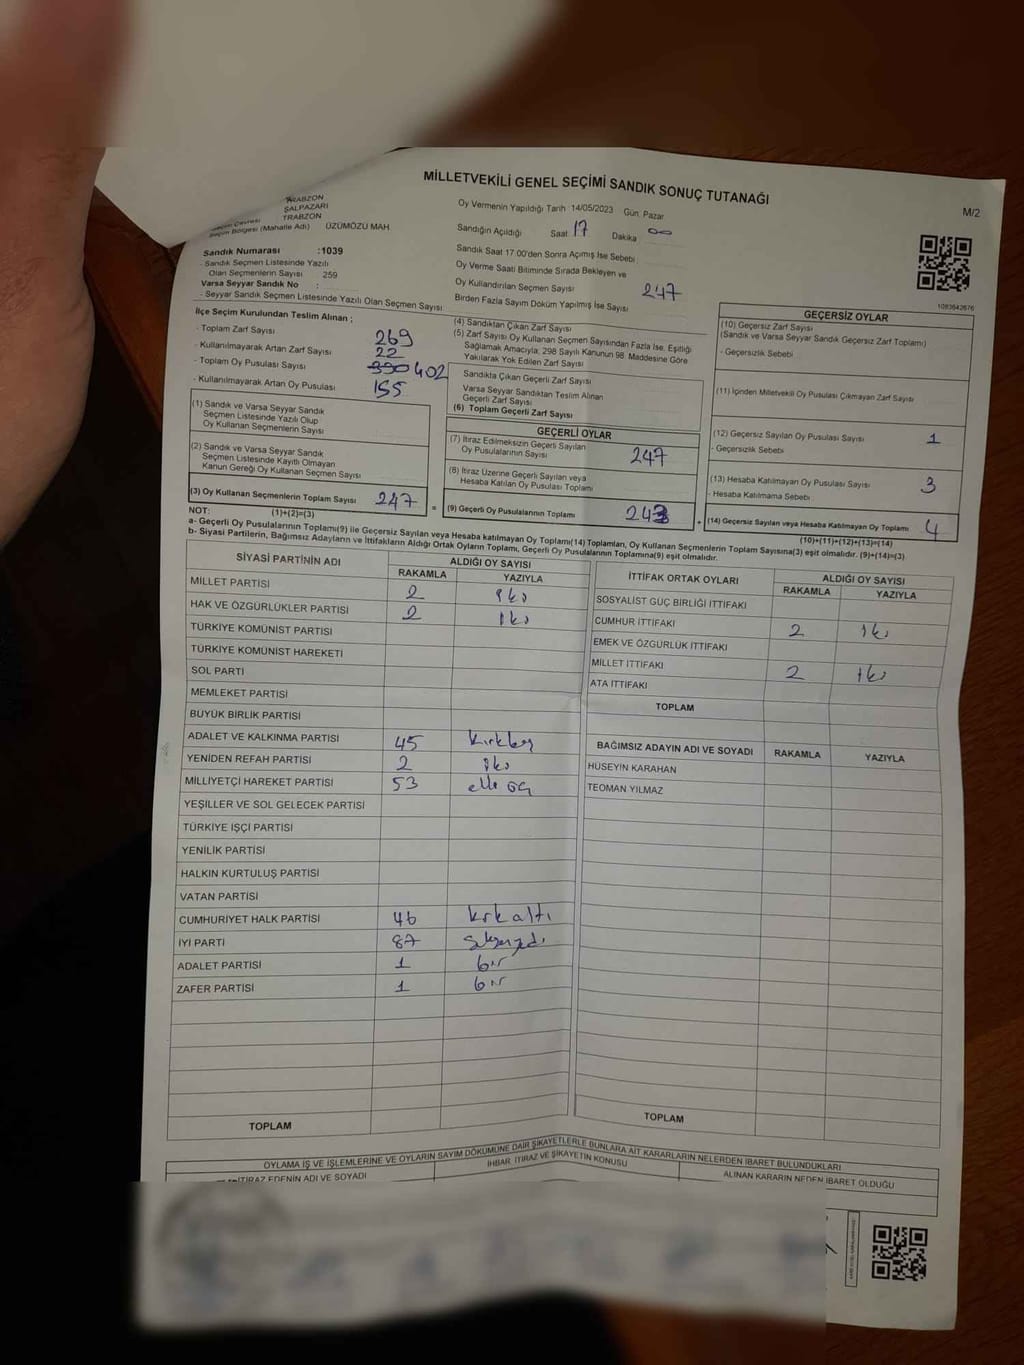 MİLLETVEKİLİ GENEL SEÇİMİ SANDIK SONUÇ TUTANAĞI
M/2
TRABZON
ŞALPAZARI
TRABZON
Seçim Bölgesi (Mahalle Adı) ÜZÜMÖZÜ MAH.
Sandık Numarası :1039
- Sandık Seçmen Listesinde Yazılı
Olan Seçmenlerin Sayısı 259
Varsa Seyyar Sandık No :
- Seyyar Sandık Seçmen Listesinde Yazılı Olan Seçmen Sayısı
Oy Vermenin Yapıldığı Tarih 14/05/2023 Gün: Pazar
Sandığın Açıldığı Saat 17 Dakika 00
Sandık Saat 17:00'den Sonra Açımış İse Sebebi
Oy Verme Saati Bitiminde Sırada Bekleyen ve
Oy Kullandırılan Seçmen Sayısı 247
Birden Fazla Sayım Döküm Yapılmış İse Sayısı
1093642676
İlçe Seçim Kurulundan Teslim Alınan ;
- Toplam Zarf Sayısı 269
- Kullanılmayarak Artan Zarf Sayısı 22
- Toplam Oy Pusulası Sayısı 390 402
- Kullanılmayarak Artan Oy Pusulası 155
(1) Sandık ve Varsa Seyyar Sandık
Seçmen Listesinde Yazılı Olup
Oy Kullanan Seçmenlerin Sayısı
(2) Sandık ve Varsa Seyyar Sandık
Seçmen Listesinde Kayıtlı Olmayan
Kanun Gereği Oy Kullanan Seçmen Sayısı
(3) Oy Kullanan Seçmenlerin Toplam Sayısı 247 =
(4) Sandıktan Çıkan Zarf Sayısı
(5) Zarf Sayısı Oy Kullanan Seçmen Sayısından Fazla İse, Eşitliği
Sağlamak Amacıyla, 298 Sayılı Kanunun 98. Maddesine Göre
Yakılarak Yok Edilen Zarf Sayısı
Sandıkta Çıkan Geçerli Zarf Sayısı
Varsa Seyyar Sandıktan Teslim Alınan
Geçerli Zarf Sayısı
(6) Toplam Geçerli Zarf Sayısı
GEÇERLİ OYLAR
(7) İtiraz Edilmeksizin Geçerli Sayılan
Oy Pusulalarının Sayısı 247
(8) İtiraz Üzerine Geçerli Sayılan veya
Hesaba Katılan Oy Pusulası Toplamı
(9) Geçerli Oy Pusulalarının Toplamı 243 +
GEÇERSİZ OYLAR
(10) Geçersiz Zarf Sayısı
(Sandık ve Varsa Seyyar Sandık Geçersiz Zarf Toplamı)
- Geçersizlik Sebebi
(11) İçinden Milletvekili Oy Pusulası Çıkmayan Zarf Sayısı
(12) Geçersiz Sayılan Oy Pusulası Sayısı 1
- Geçersizlik Sebebi
(13) Hesaba Katılmayan Oy Pusulası Sayısı 3
- Hesaba Katılmama Sebebi
(14) Geçersiz Sayılan veya Hesaba Katılmayan Oy Toplamı 4
NOT: (1)+(2)=(3) (10)+(11)+(12)+(13)=(14)
a- Geçerli Oy Pusulalarının Toplamı(9) ile Geçersiz Sayılan veya Hesaba Katılmayan Oy Toplamı(14) Toplamları, Oy Kullanan Seçmenlerin Toplam Sayısına(3) eşit olmalıdır. (9)+(14)=(3)
b- Siyasi Partilerin, Bağımsız Adayların ve İttifakların Aldığı Ortak Oyların Toplamı, Geçerli Oy Pusulalarının Toplamına(9) eşit olmalıdır.
SİYASİ PARTİNİN ADI ALDIĞI OY SAYISI
RAKAMLA YAZIYLA
MİLLET PARTİSİ 2 iki
HAK VE ÖZGÜRLÜKLER PARTİSİ 2 iki
TÜRKİYE KOMÜNİST PARTİSİ
TÜRKİYE KOMÜNİST HAREKETİ
SOL PARTİ
MEMLEKET PARTİSİ
BÜYÜK BİRLİK PARTİSİ
ADALET VE KALKINMA PARTİSİ 45 kırkbeş
YENİDEN REFAH PARTİSİ 2 iki
MİLLİYETÇİ HAREKET PARTİSİ 53 elli üç
YEŞİLLER VE SOL GELECEK PARTİSİ
TÜRKİYE İŞÇİ PARTİSİ
YENİLİK PARTİSİ
HALKIN KURTULUŞ PARTİSİ
VATAN PARTİSİ
CUMHURİYET HALK PARTİSİ 46 kırkaltı
İYİ PARTİ 87 seksenyedi
ADALET PARTİSİ 1 bir
ZAFER PARTİSİ 1 bir
TOPLAM
İTTİFAK ORTAK OYLARI ALDIĞI OY SAYISI
RAKAMLA YAZIYLA
SOSYALİST GÜÇ BİRLİĞİ İTTİFAKI
CUMHUR İTTİFAKI 2 iki
EMEK VE ÖZGÜRLÜK İTTİFAKI
MİLLET İTTİFAKI 2 iki
ATA İTTİFAKI
TOPLAM
BAĞIMSIZ ADAYIN ADI VE SOYADI RAKAMLA YAZIYLA
HÜSEYİN KARAHAN
TEOMAN YILMAZ
TOPLAM
OYLAMA İŞ VE İŞLEMLERİNE VE OYLARIN SAYIM DÖKÜMÜNE DAİR ŞİKAYETLERLE BUNLARA AİT KARARLARIN NELERDEN İBARET BULUNDUKLARI
İTİRAZ EDENİN ADI VE SOYADI İHBAR, İTİRAZ VE ŞİKAYETİN KONUSU ALINAN KARARIN NEDEN İBARET OLDUĞU